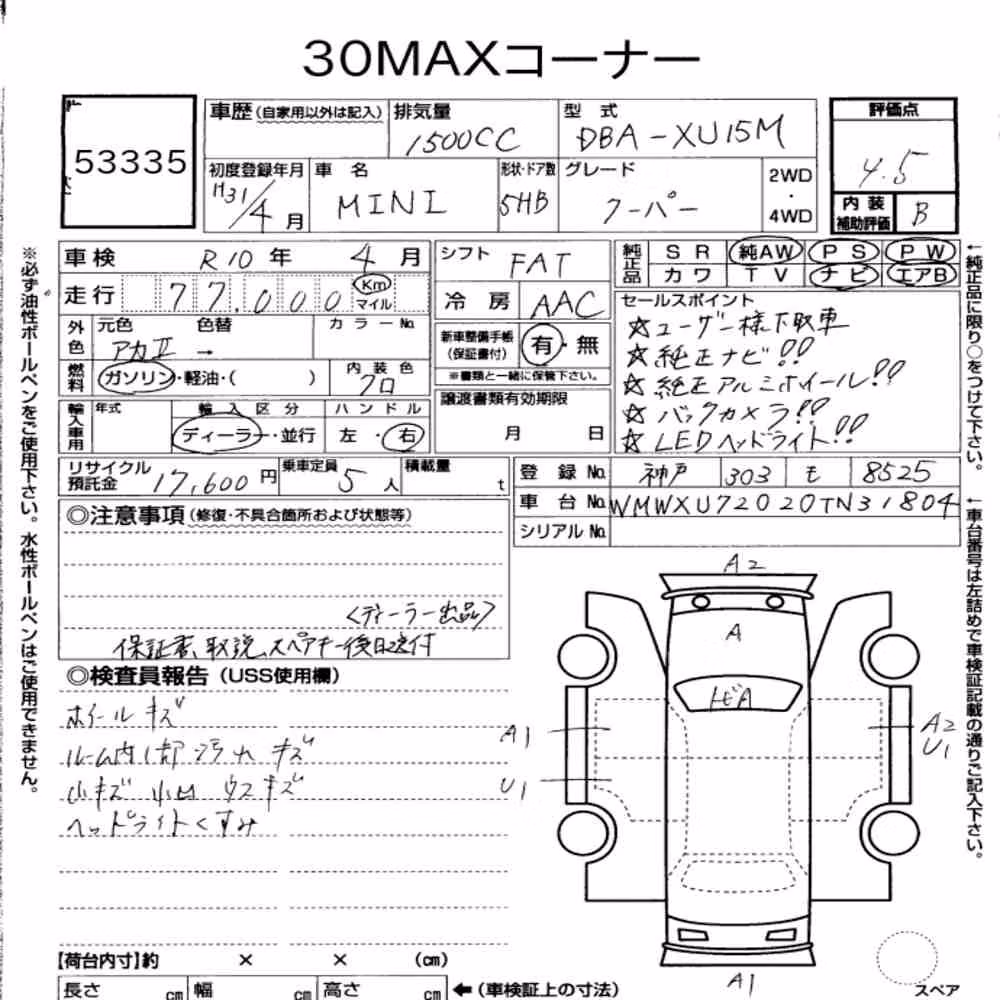 30MAXコーナー
53335
車歴 (自家用以外は記入)
排気量
1500CC
型式
DBA-XU15M
評価点
4.5
初度登録年月
H31/4月
車名
MINI
形状・ドア数
5HB
グレード
クーパー
2WD
・
4WD
内装
補助評価
B
車検 R10年 4月
シフト FAT
純正品
SR 純AW PS PW
カワ TV ナビ エアB
走行 77,000 Km
マイル
冷房 AAC
セールスポイント
☆ユーザー様下取車
☆純正ナビ!!
☆純正アルミホイール!!
☆バックカメラ!!
☆LEDヘッドライト!!
外色
元色 色替 カラーNo.
アカII →
新車整備手帳
(保証書付)
有・無
※書類と一緒に保管下さい。
燃料
ガソリン・軽油・( )
内装色
クロ
輸入車用
年式
輸入区分
ディーラー・並行
ハンドル
左・右
譲渡書類有効期限
月 日
リサイクル
預託金
17,600円
乗車定員
5人
積載量
t
登録No. 神戸 303 も 8525
車台No. WMWXU72020TN31804
シリアルNo.
◎注意事項 (修復・不具合箇所および状態等)
<ディーラー出品>
保証書、取説、スペアキー後日送付
◎検査員報告 (USS使用欄)
ホイールキズ
ルーム内1部汚れ キズ
小キズ 小凹 ウスキズ
ヘッドライトくすみ
A2
A
トビA
A1
U1
A2
U1
A1
スペア
【荷台内寸】約 × × (cm)
長さ cm 幅 cm 高さ cm
←(車検証上の寸法)
※必ず油性ボールペンをご使用下さい。水性ボールペンはご使用できません。
←純正品に限り○をつけて下さい。
←車台番号は左詰めで車検証記載の通りご記入下さい。